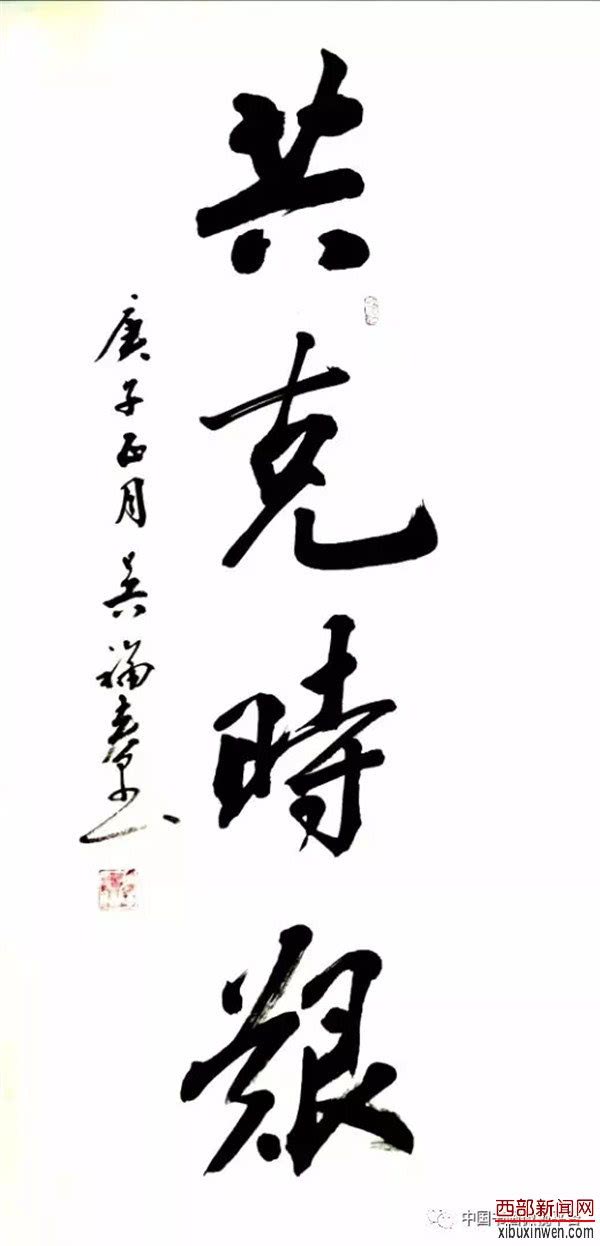 共克時艱
庚子正月吴福春
中国书画
西部新闻网
xibuxinwen.com